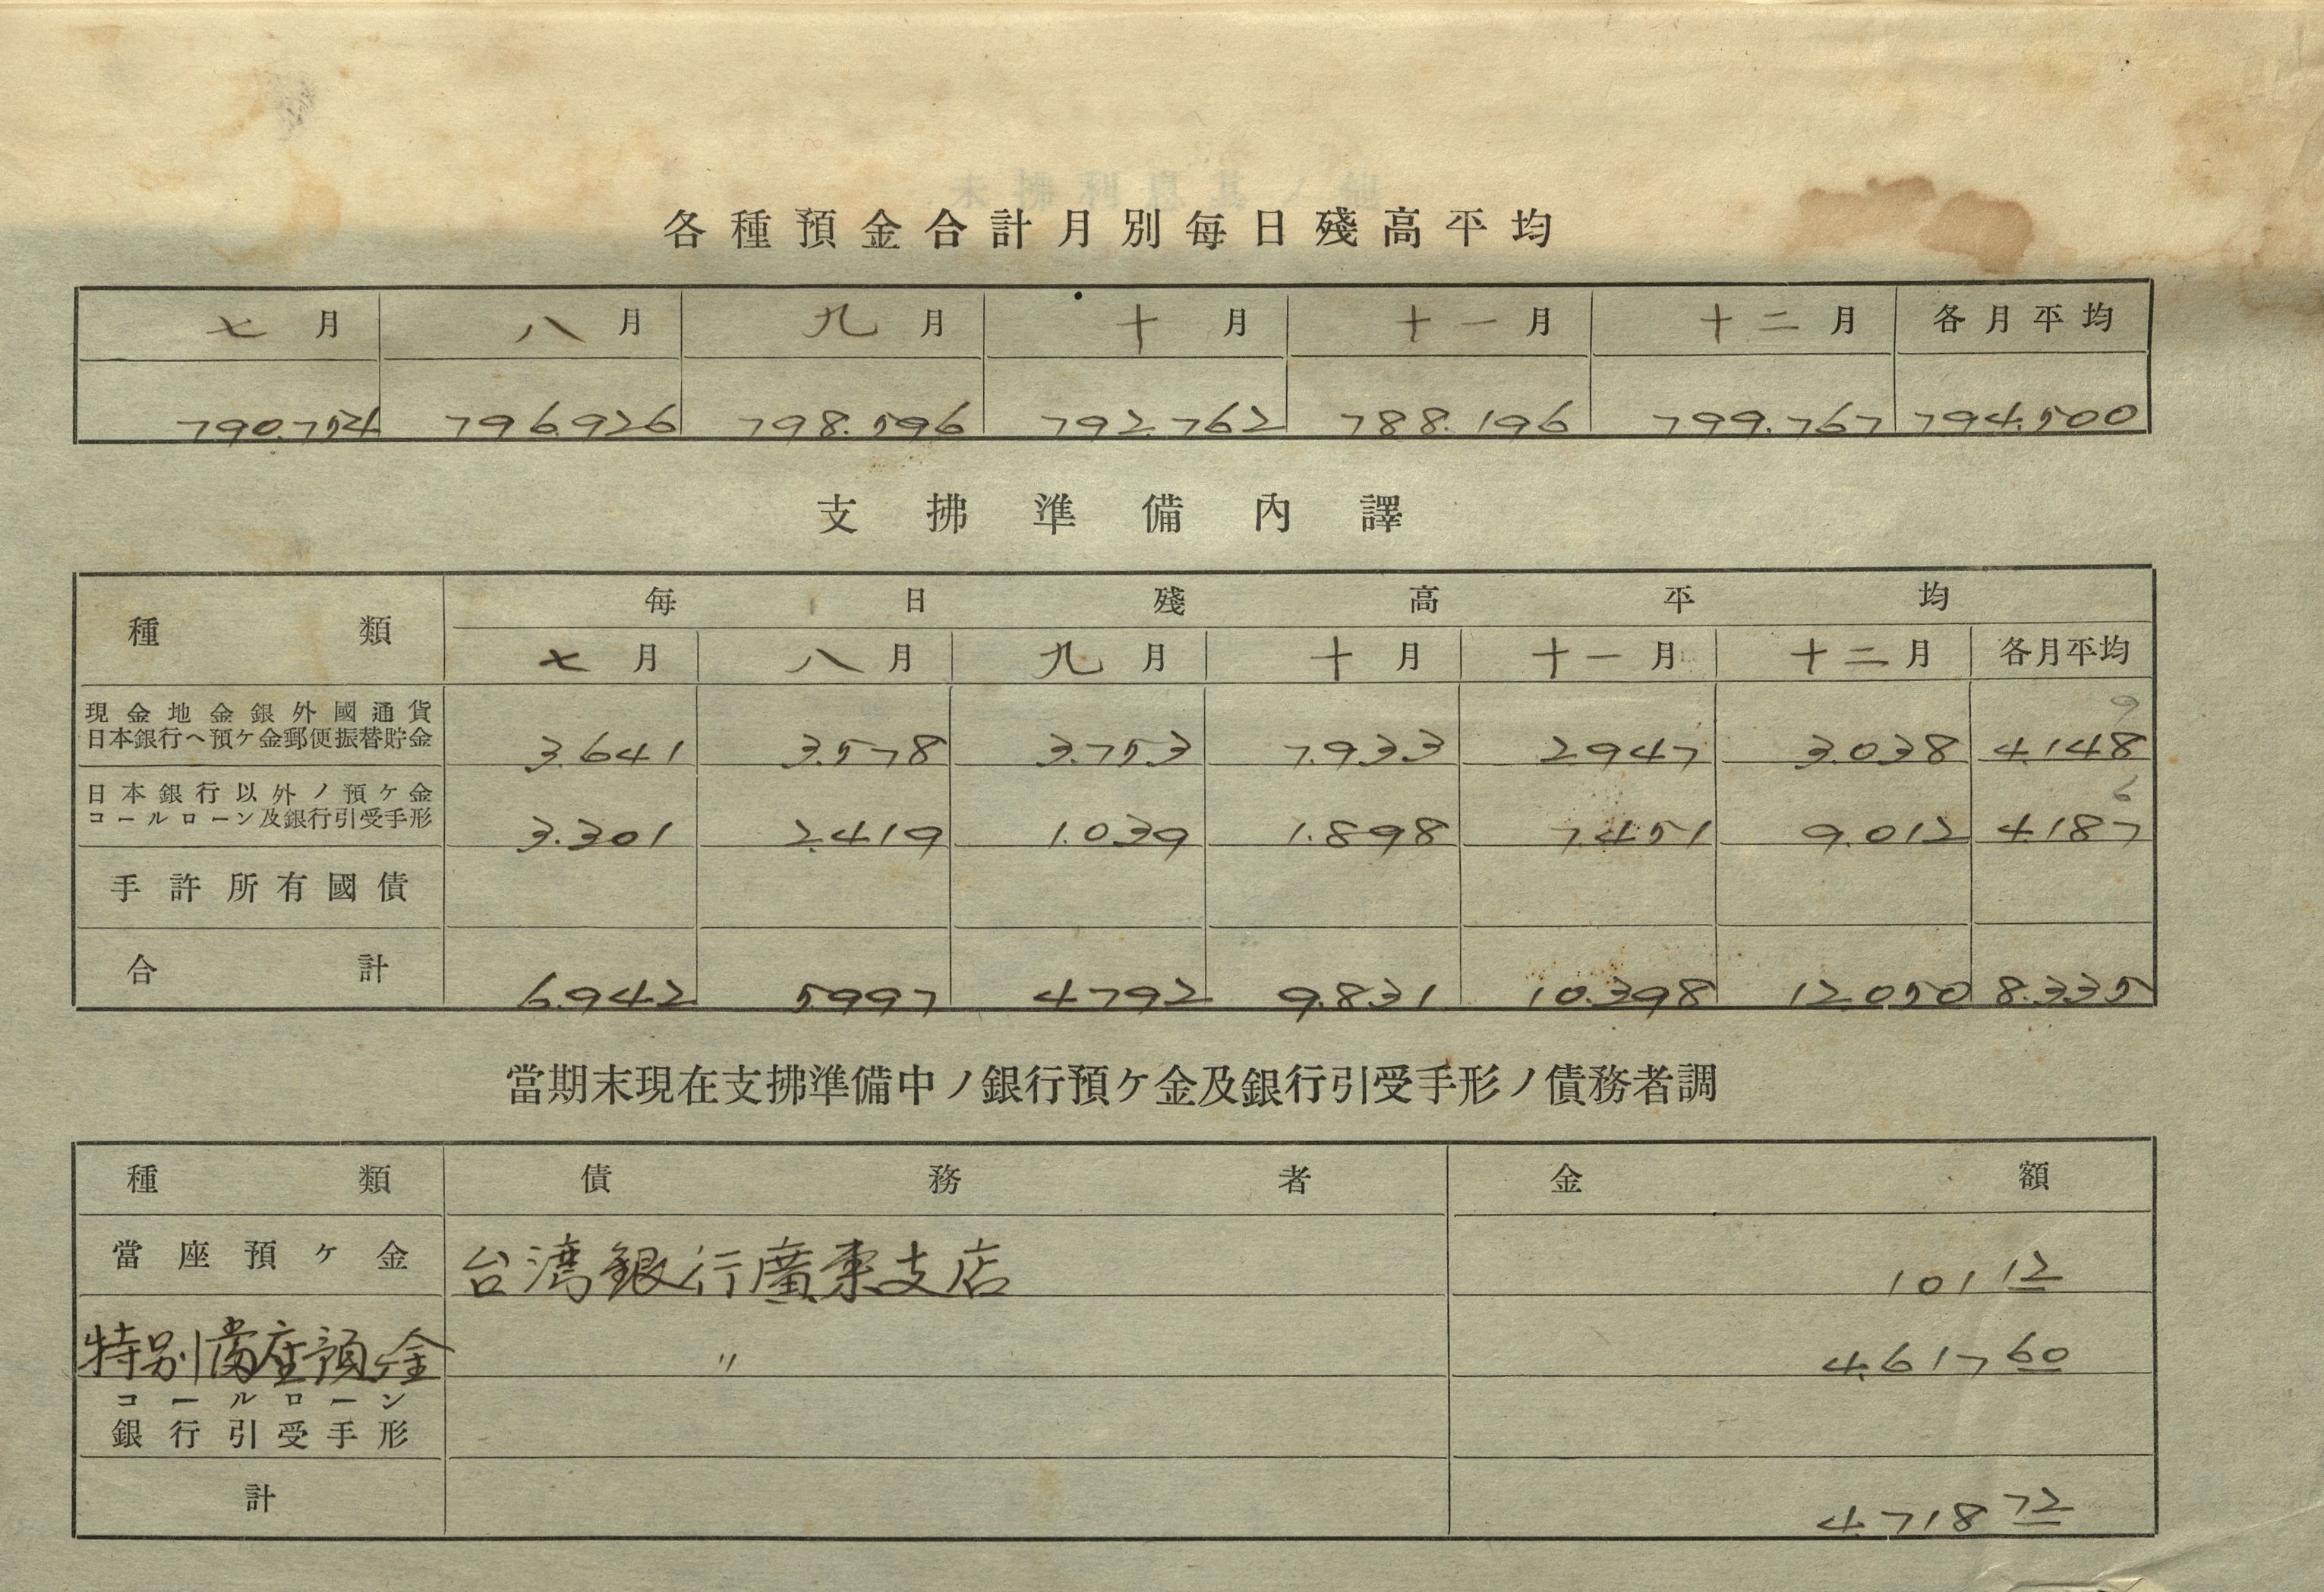 各種預金合計月別每日殘高平均
七月 八月 九月 十月 十一月 十二月 各月平均
790.754 796.926 798.596 792.762 788.196 799.767 794.500
支拂準備內譯
種類 每日殘高平均
七月 八月 九月 十月 十一月 十二月 各月平均
9
現金地金銀外國通貨
日本銀行ヘ預ケ金郵便振替貯金 3.641 3.578 3.753 7.933 2947 3.038 4.148
6
日本銀行以外ノ預ケ金
コールローン及銀行引受手形 3.301 2.419 1.039 1.898 7.451 9.012 4.187
手許所有國債
合計 6.942 5997 4792 9.831 10.398 12.050 8.335
當期末現在支拂準備中ノ銀行預ケ金及銀行引受手形ノ債務者調
種類 債務者 金額
當座預ケ金 台湾銀行廣東支店 101 12
特別當座預ケ金 〃 4.617 60
コールローン
銀行引受手形
計 4.718 72